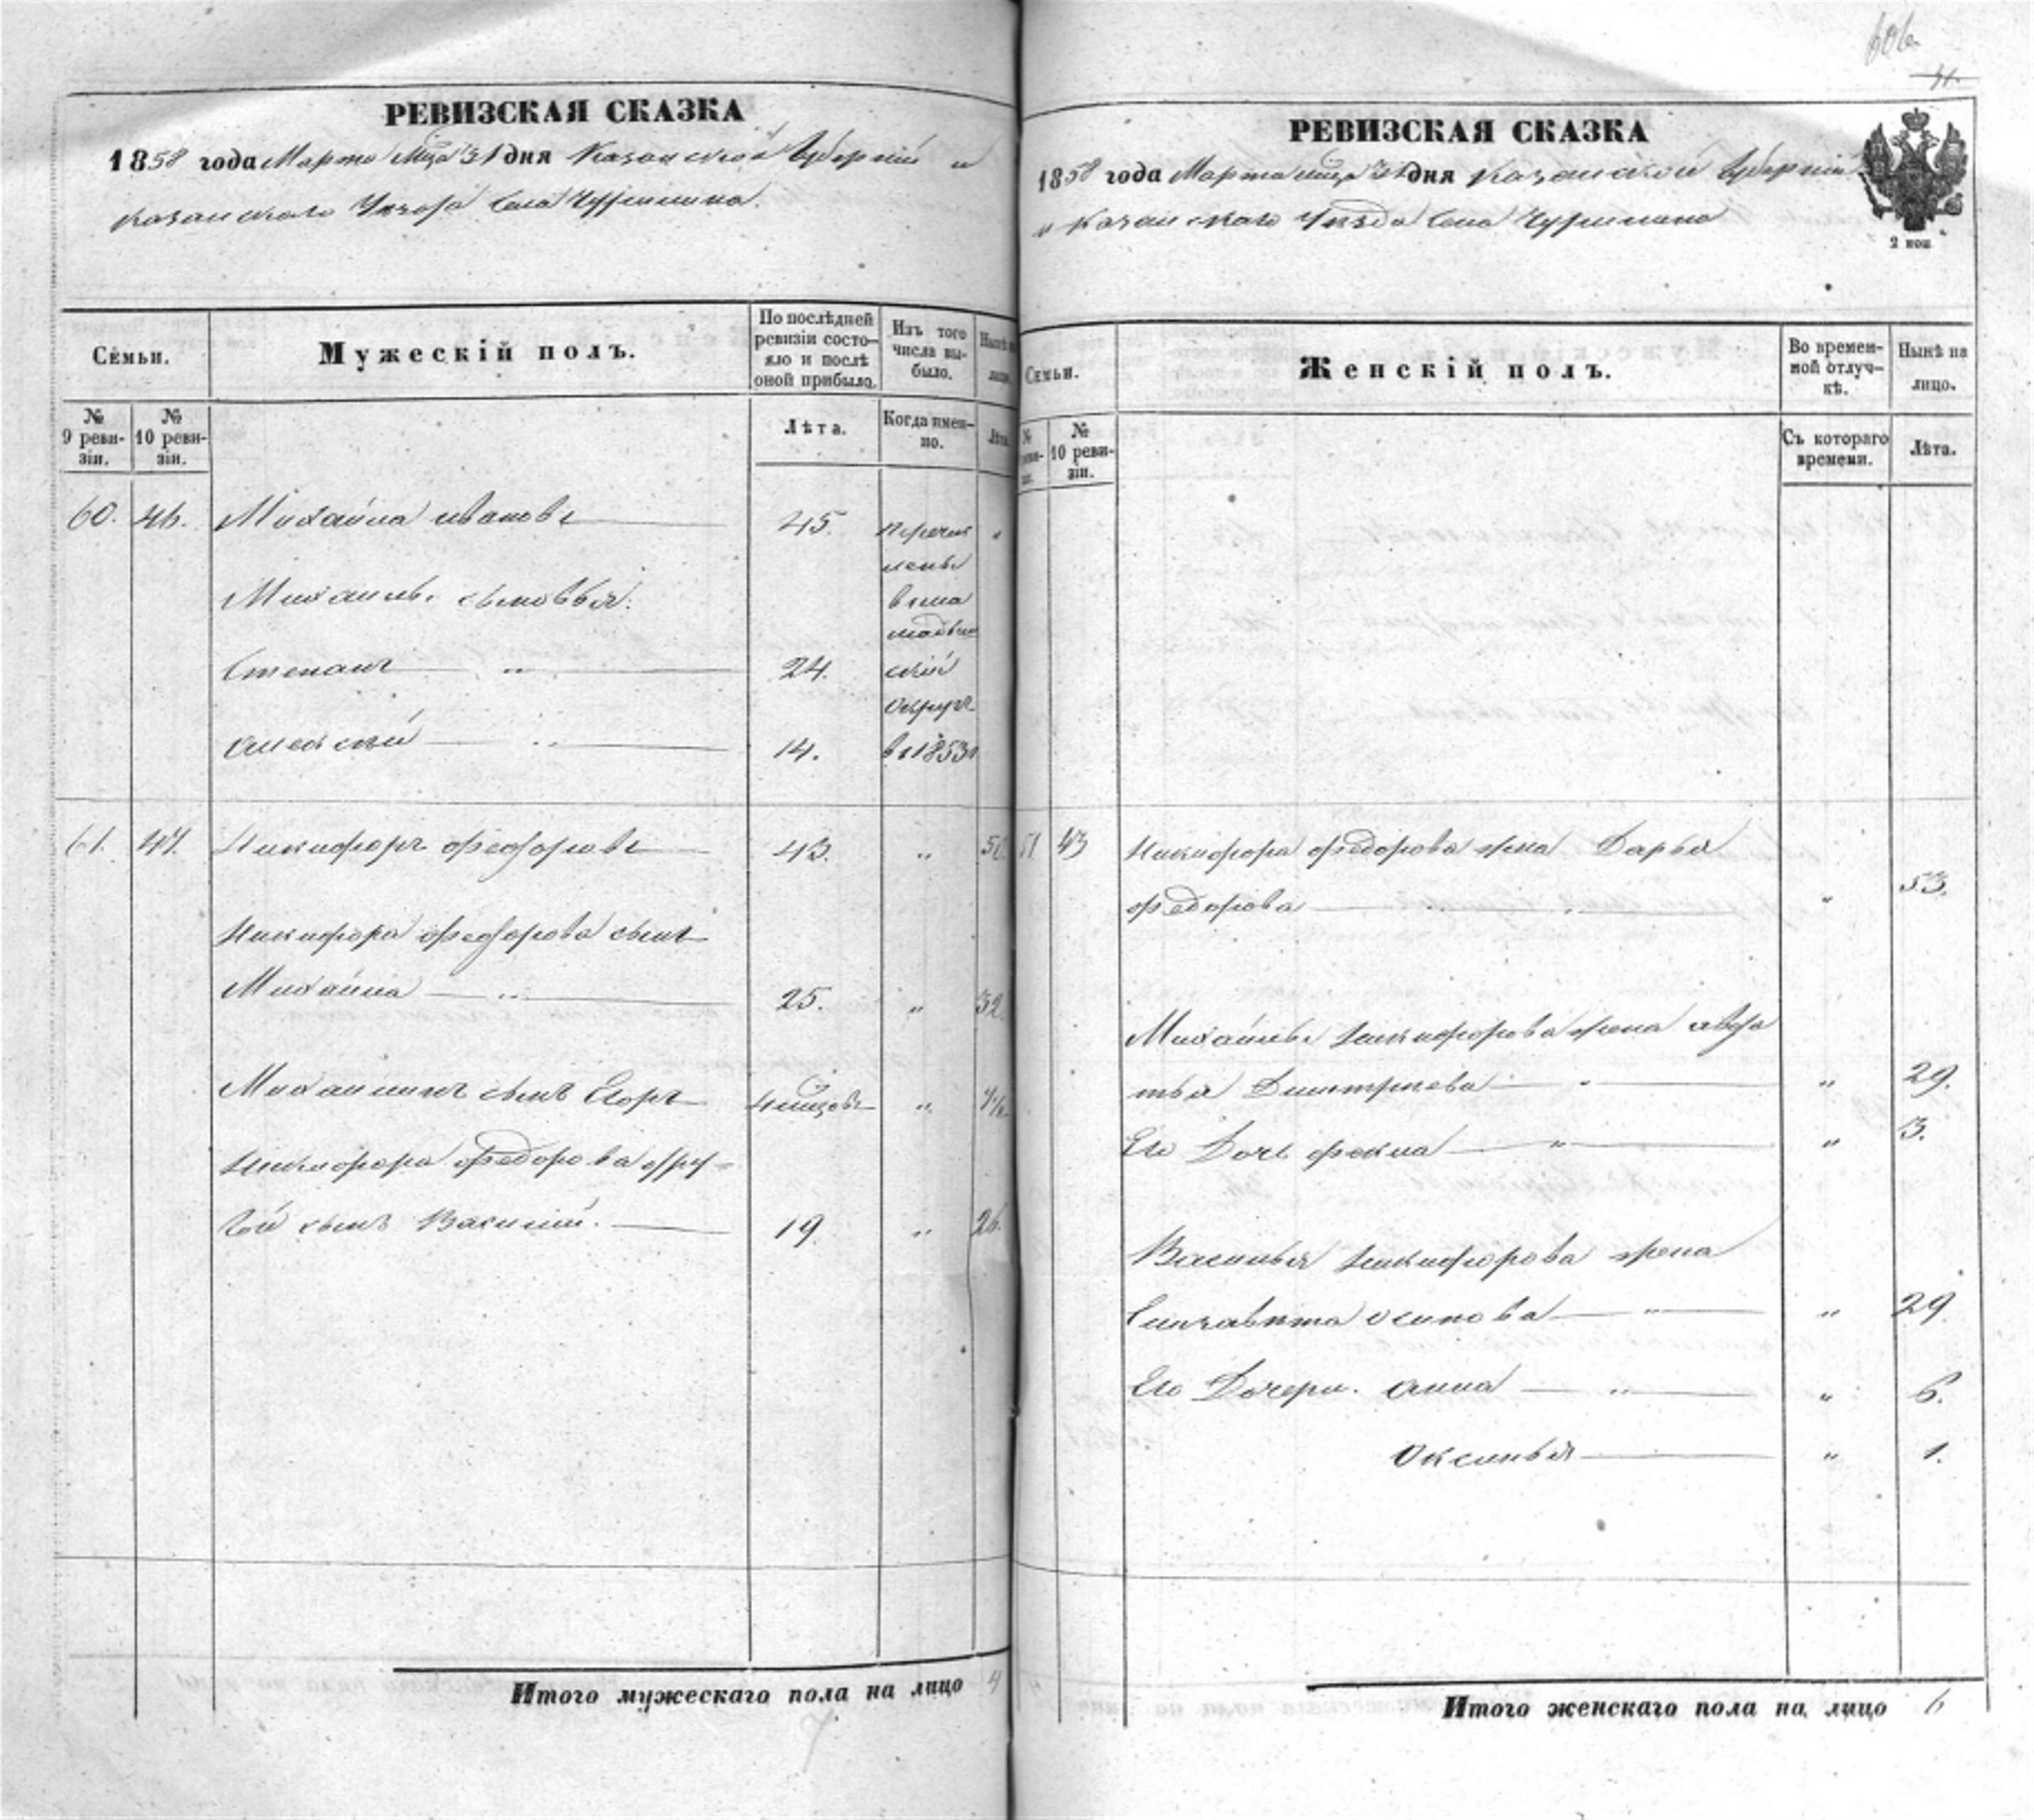 РЕВИЗСКАЯ СКАЗКА
1858 года Марта мца 31 дня Казанской Губерніи и
Казанскаго Уезда Села
Семьи.
Мужескій полъ.
По послѣдней ревизіи состояло и послѣ оной прибыло.
Изъ того числа выбыло.
Нынѣ на лицо.
№ 9 ревизіи.
№ 10 ревизіи.
Лѣта.
Когда именно.
Лѣта.
60. 46. Михайла Ивановъ 45. перечис „
ленъ
Михайлы сыновья: въ ма
мадыш
Степанъ „ 24. скій
округъ
Алексей „ 14. въ 1853 г
61. 47. Никифоръ Федоровъ 43. „ 50.
Никифора Федорова сынъ
Михайла „ 25. „ 32.
Михайлинъ сынъ Егоръ 4 мцовъ „
Никифора Федорова дру-
гой сынъ Василий. 19 „ 26.
Итого мужескаго пола на лицо 4
7
606
31.
РЕВИЗСКАЯ СКАЗКА
1858 года Марта мца 31 дня Казанской Губерніи
и Казанскаго Уезда Села
2 коп
Семьи.
Женскій полъ.
Во временной отлучкѣ.
Нынѣ на лицо.
№ ревизіи.
№ 10 ревизіи.
Съ котораго времени.
Лѣта.
61 43 Никифора Федорова жена Дарья
Федорова „ „ 53.
Михайлы Никифорова жена Авдо
тья Дмитриева „ „ 29.
Его Дочь Фекла „ „ 3.
Василья Никифорова жена
Елизавета Осипова „ „ 29
Его Дочери. Анна „ „ 6.
Оксинья „ 1.
Итого женскаго пола на лицо 6